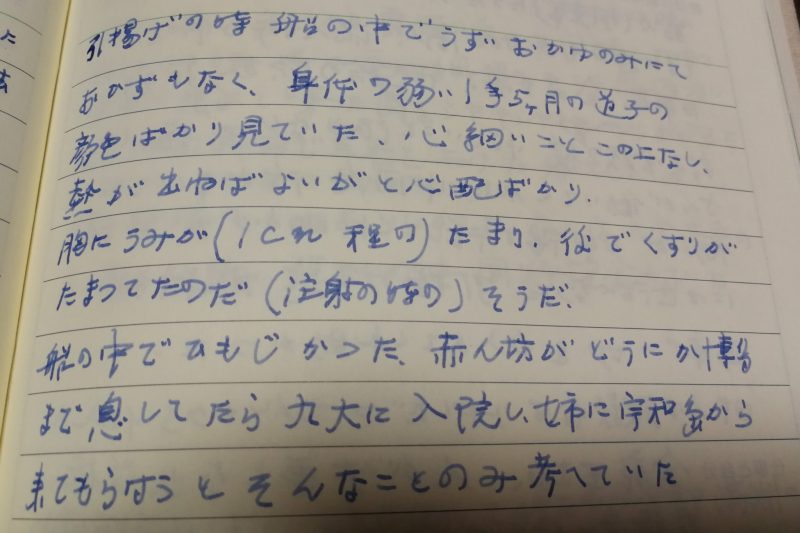 引揚げの時船の中でうずおかゆのみにて
おかずもなく、身体の弱い1年5ヶ月の道子の
顔色ばかり見ていた、心細いことこの上なし、
熱が出ねばよいがと心配ばかり.
胸にうみが(1cm程の)たまり、後でくすりが
たまってたのだ(注射の時の)そうだ、
船の中でひもじかった、赤ん坊がどうにか博多
まで息してたら九大に入院し、姉に宇和島から
来てもらはうとそんなことのみ考へていた